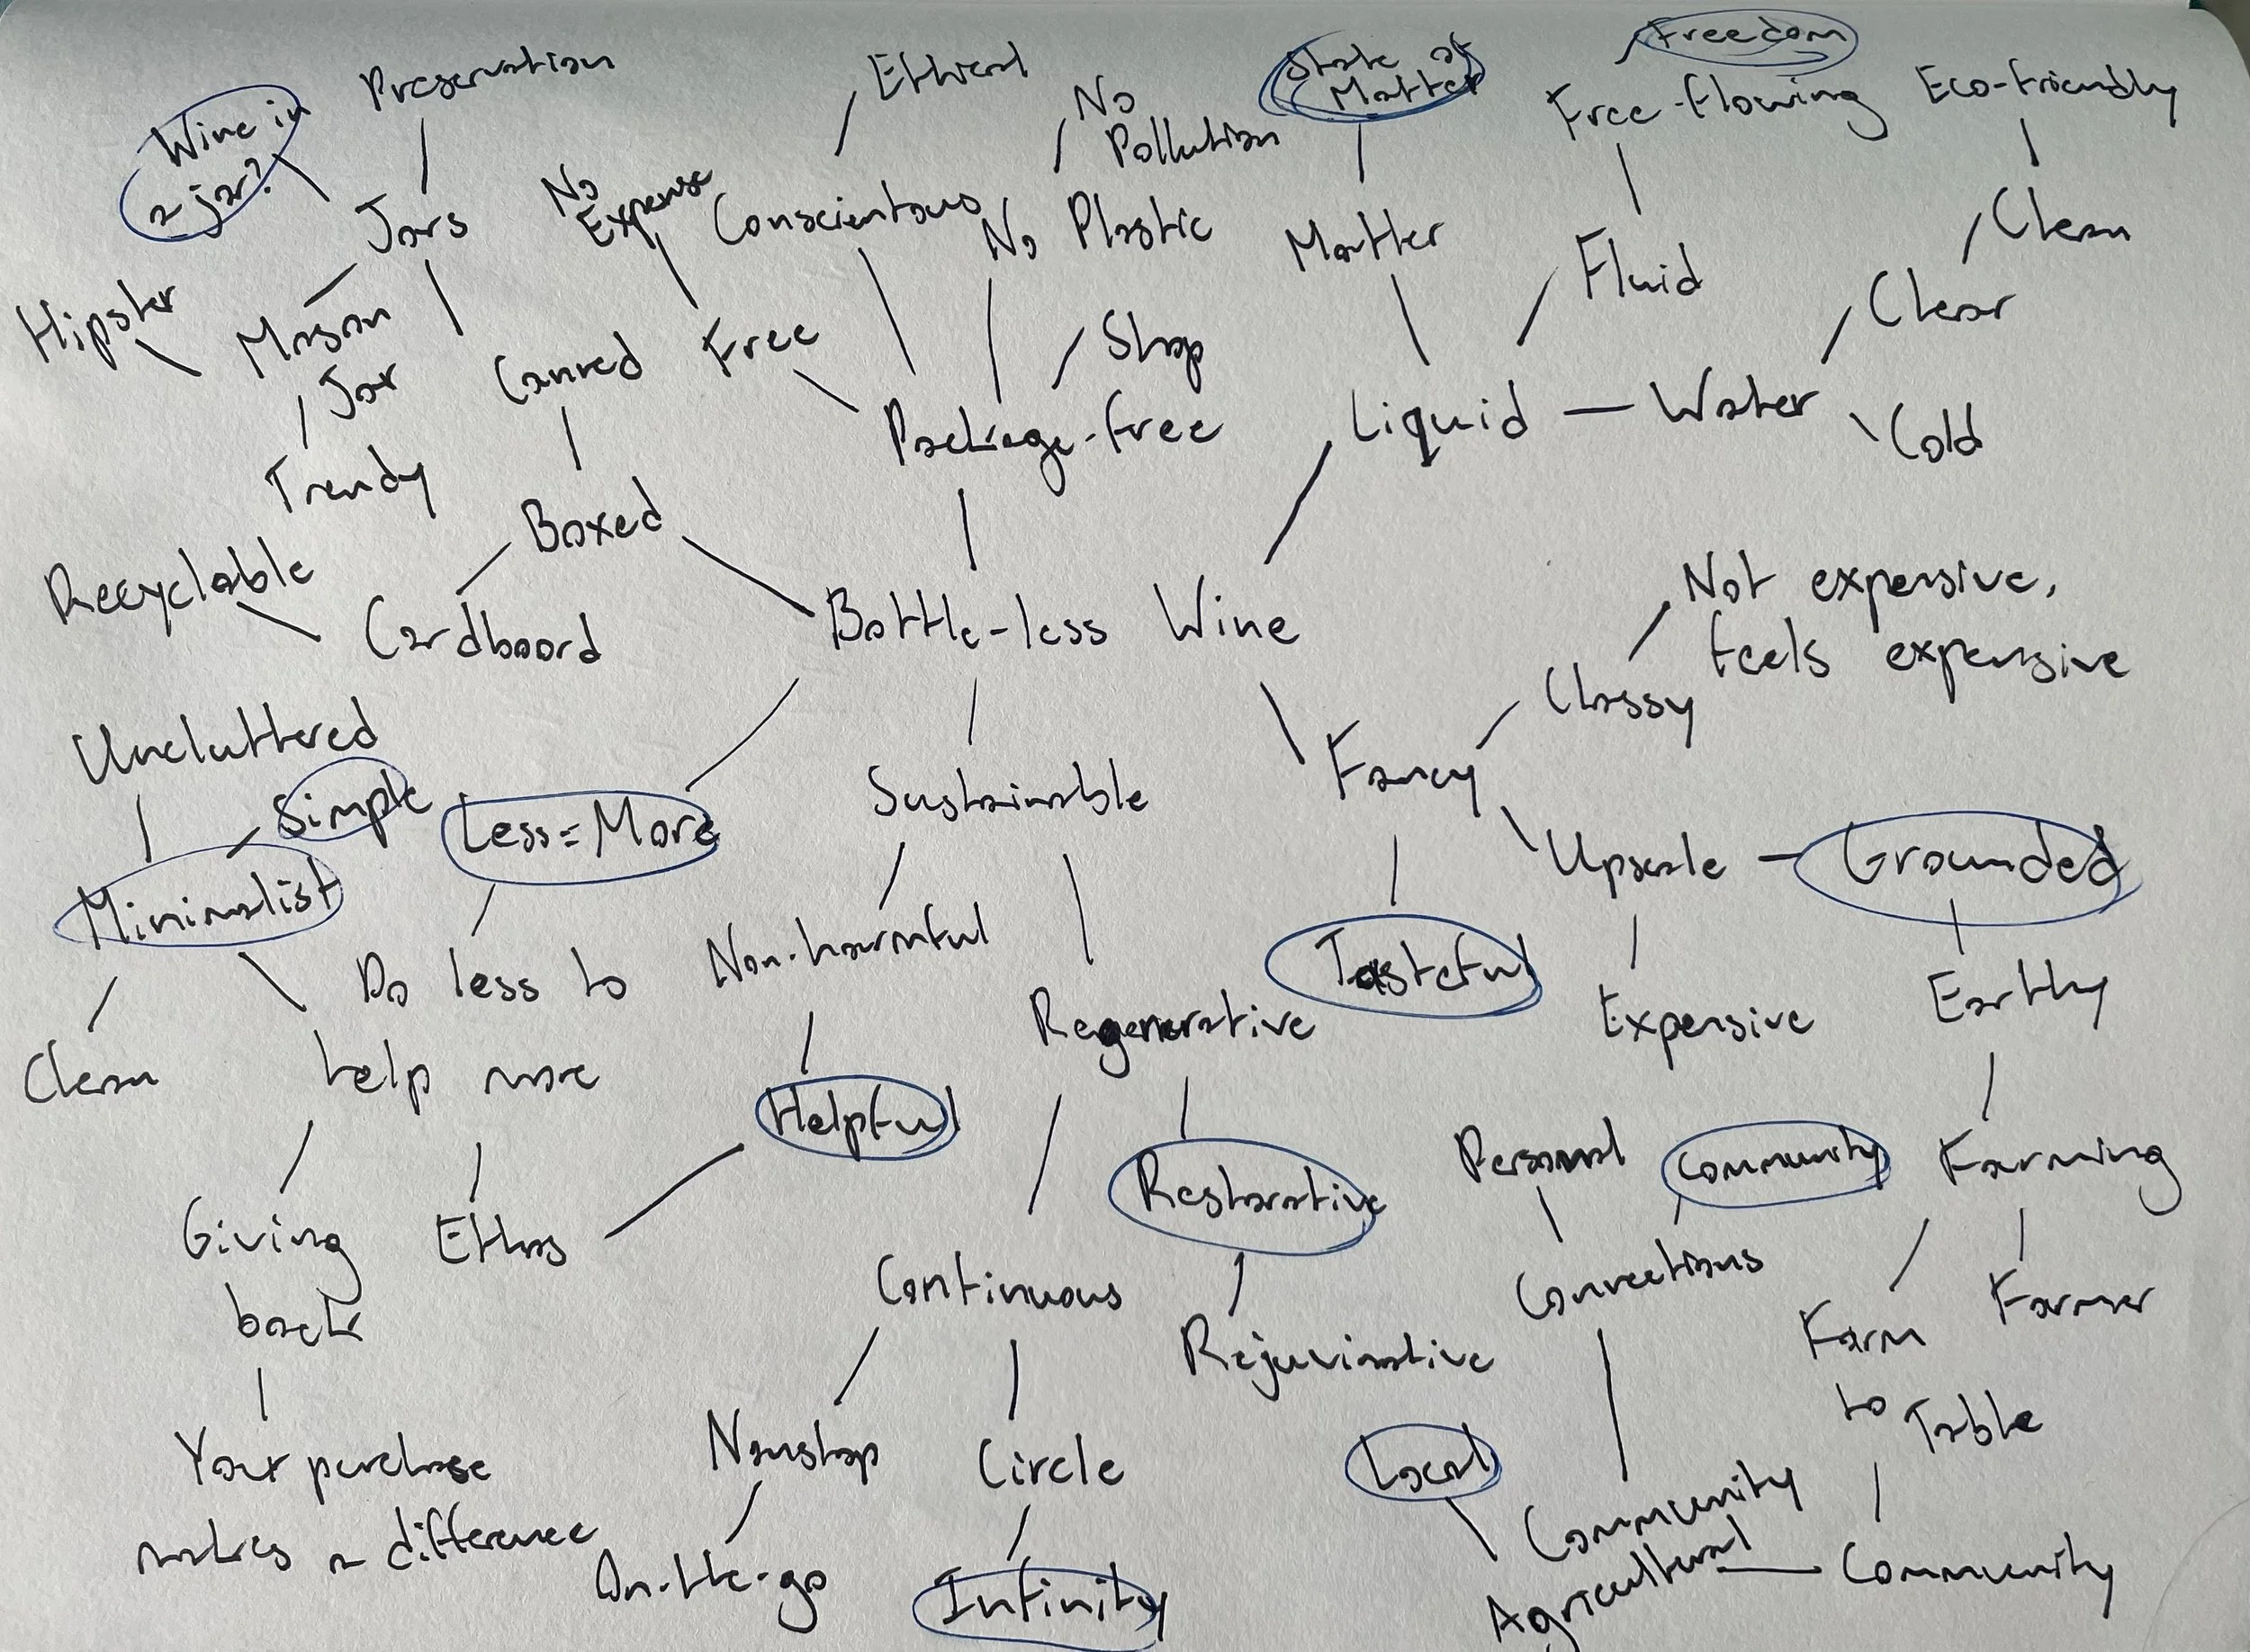 Wine in
a jar?
Preservation
Ethical
No
Pollution
State of
Matter
Freedom
Free-flowing
Eco-friendly
Jars
No
Expense
Conscientous
No Plastic
Matter
Fluid
Clean
Hipster
Mason
Jar
Canned
Free
Shop
Clear
Trendy
Package-free
Liquid
Water
Cold
Boxed
Recyclable
Cardboard
Bottle-less Wine
Not expensive,
feels expensive
Classy
Uncluttered
Simple
Less=More
Sustainable
Fancy
Upscale
Grounded
Minimalist
Do less to
help more
Non-harmful
Regenerative
Tasteful
Expensive
Earthy
Clean
Helpful
Restorative
Personal
Community
Farming
Giving
back
Ethos
Continuous
Rejuvinative
Connections
Farm
to
Table
Farmer
Your purchase
makes a difference
Nonstop
Circle
Local
Community
Agricultural
Community
On-the-go
Infinity